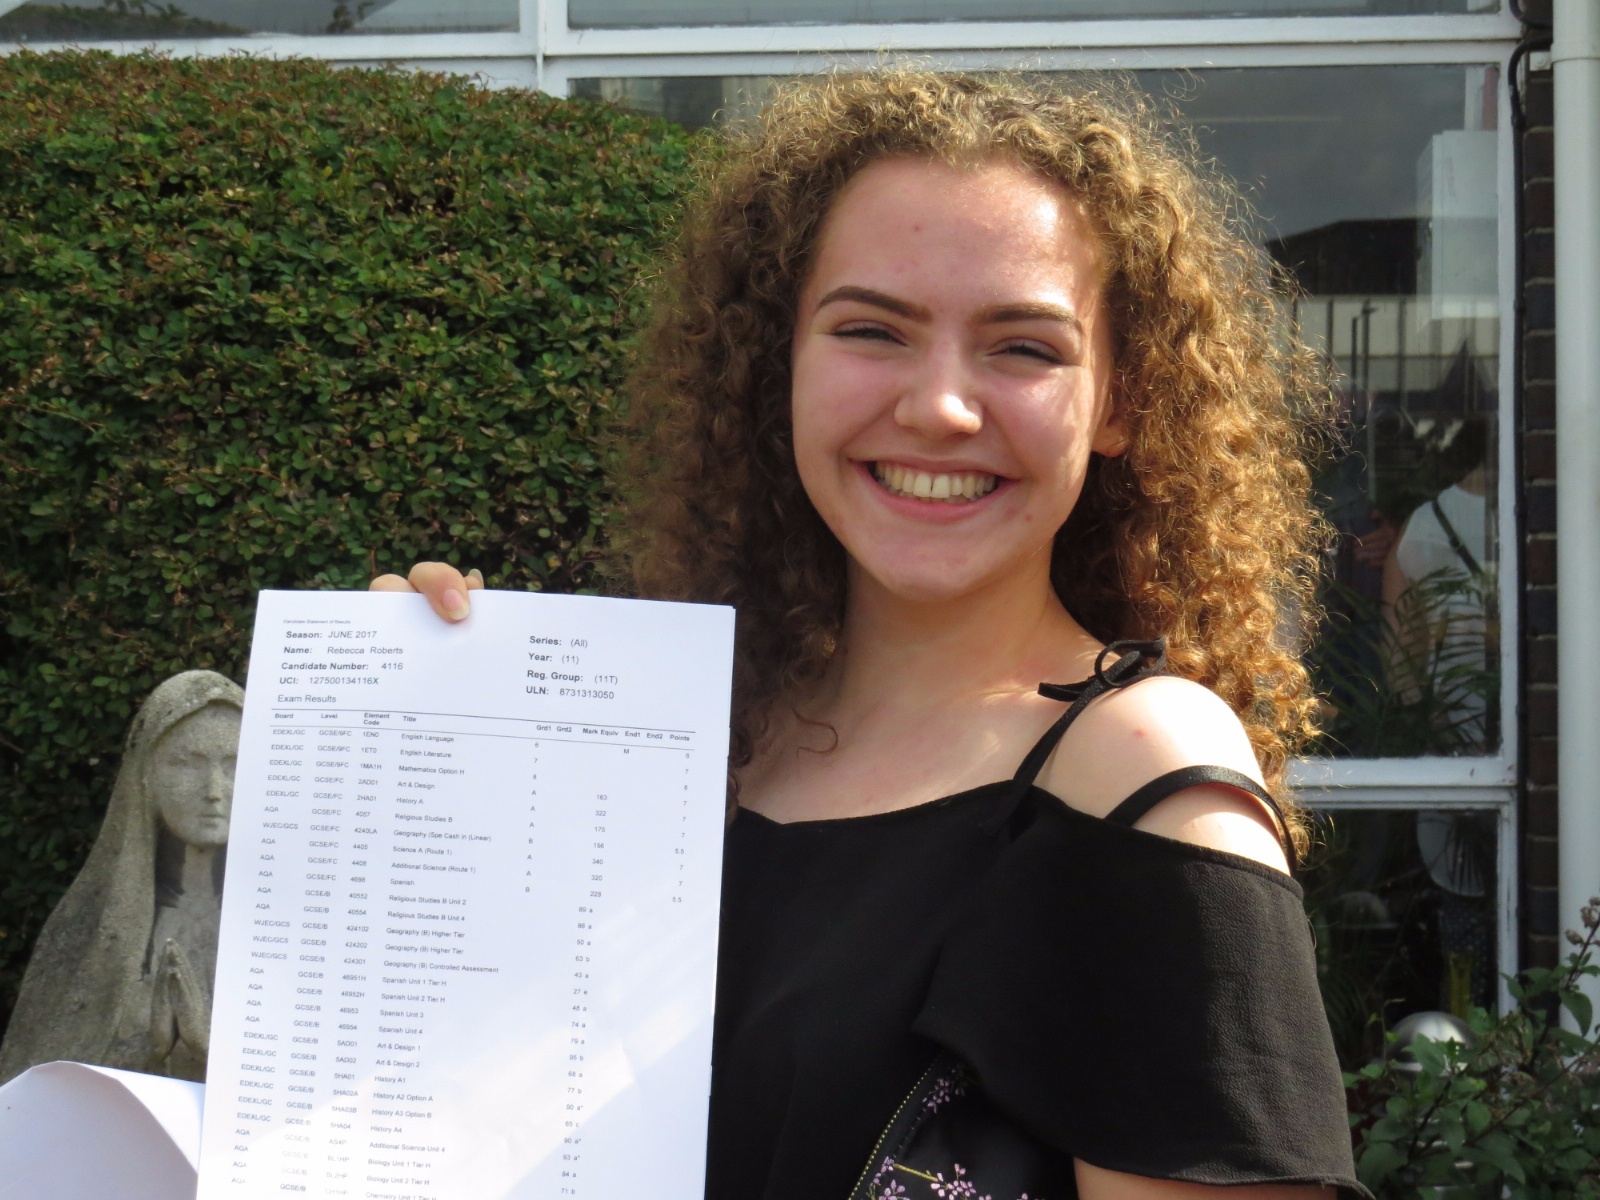 Candidate Statement of Results
Season: JUNE 2017
Name: Rebecca Roberts
Candidate Number: 4116
UCI: 127500134116X
Series: (All)
Year: (11)
Reg. Group: (11T)
ULN: 8731313050
Exam Results
Board Level Element Code Title Grd1 Grd2 Mark Equiv End1 End2 Points
EDEXL/GC GCSE/9FC 1EN0 English Language 6 M
EDEXL/GC GCSE/9FC 1ET0 English Literature 7 7
EDEXL/GC GCSE/9FC 1MA1H Mathematics Option H 8 8
EDEXL/GC GCSE/FC 2AD01 Art & Design A 163 7
EDEXL/GC GCSE/FC 2HA01 History A A 322 7
AQA GCSE/FC 4057 Religious Studies B A 175 7
WJEC/GCS GCSE/FC 4240LA Geography (Spe Cash in (Linear) B 156 5.5
AQA GCSE/FC 4405 Science A (Route 1) A 340 7
AQA GCSE/FC 4408 Additional Science (Route 1) A 320 7
AQA GCSE/FC 4698 Spanish B 228 5.5
AQA GCSE/B 40552 Religious Studies B Unit 2 89 a
AQA GCSE/B 40554 Religious Studies B Unit 4 86 a
WJEC/GCS GCSE/B 424102 Geography (B) Higher Tier 50 a
WJEC/GCS GCSE/B 424202 Geography (B) Higher Tier 63 b
WJEC/GCS GCSE/B 424301 Geography (B) Controlled Assessment 43 a
AQA GCSE/B 46951H Spanish Unit 1 Tier H 27
AQA GCSE/B 46952H Spanish Unit 2 Tier H 48 a
AQA GCSE/B 46953 Spanish Unit 3 74 a
AQA GCSE/B 46954 Spanish Unit 4 79 a
EDEXL/GC GCSE/B 5AD01 Art & Design 1 95 b
EDEXL/GC GCSE/B 5AD02 Art & Design 2 68 a
EDEXL/GC GCSE/B 5HA01 History A1 77 b
EDEXL/GC GCSE/B 5HA02A History A2 Option A 90 a*
EDEXL/GC GCSE/B 5HA03B History A3 Option B 65 c
EDEXL/GC GCSE/B 5HA04 History A4 90 a*
AQA GCSE/B AS4P Additional Science Unit 4 93 a*
AQA GCSE/B BL1HP Biology Unit 1 Tier H 84 a
AQA GCSE/B BL2HP Biology Unit 2 Tier H 71 b
AQA GCSE/B CH1HP Chemistry Unit 1 Tier H